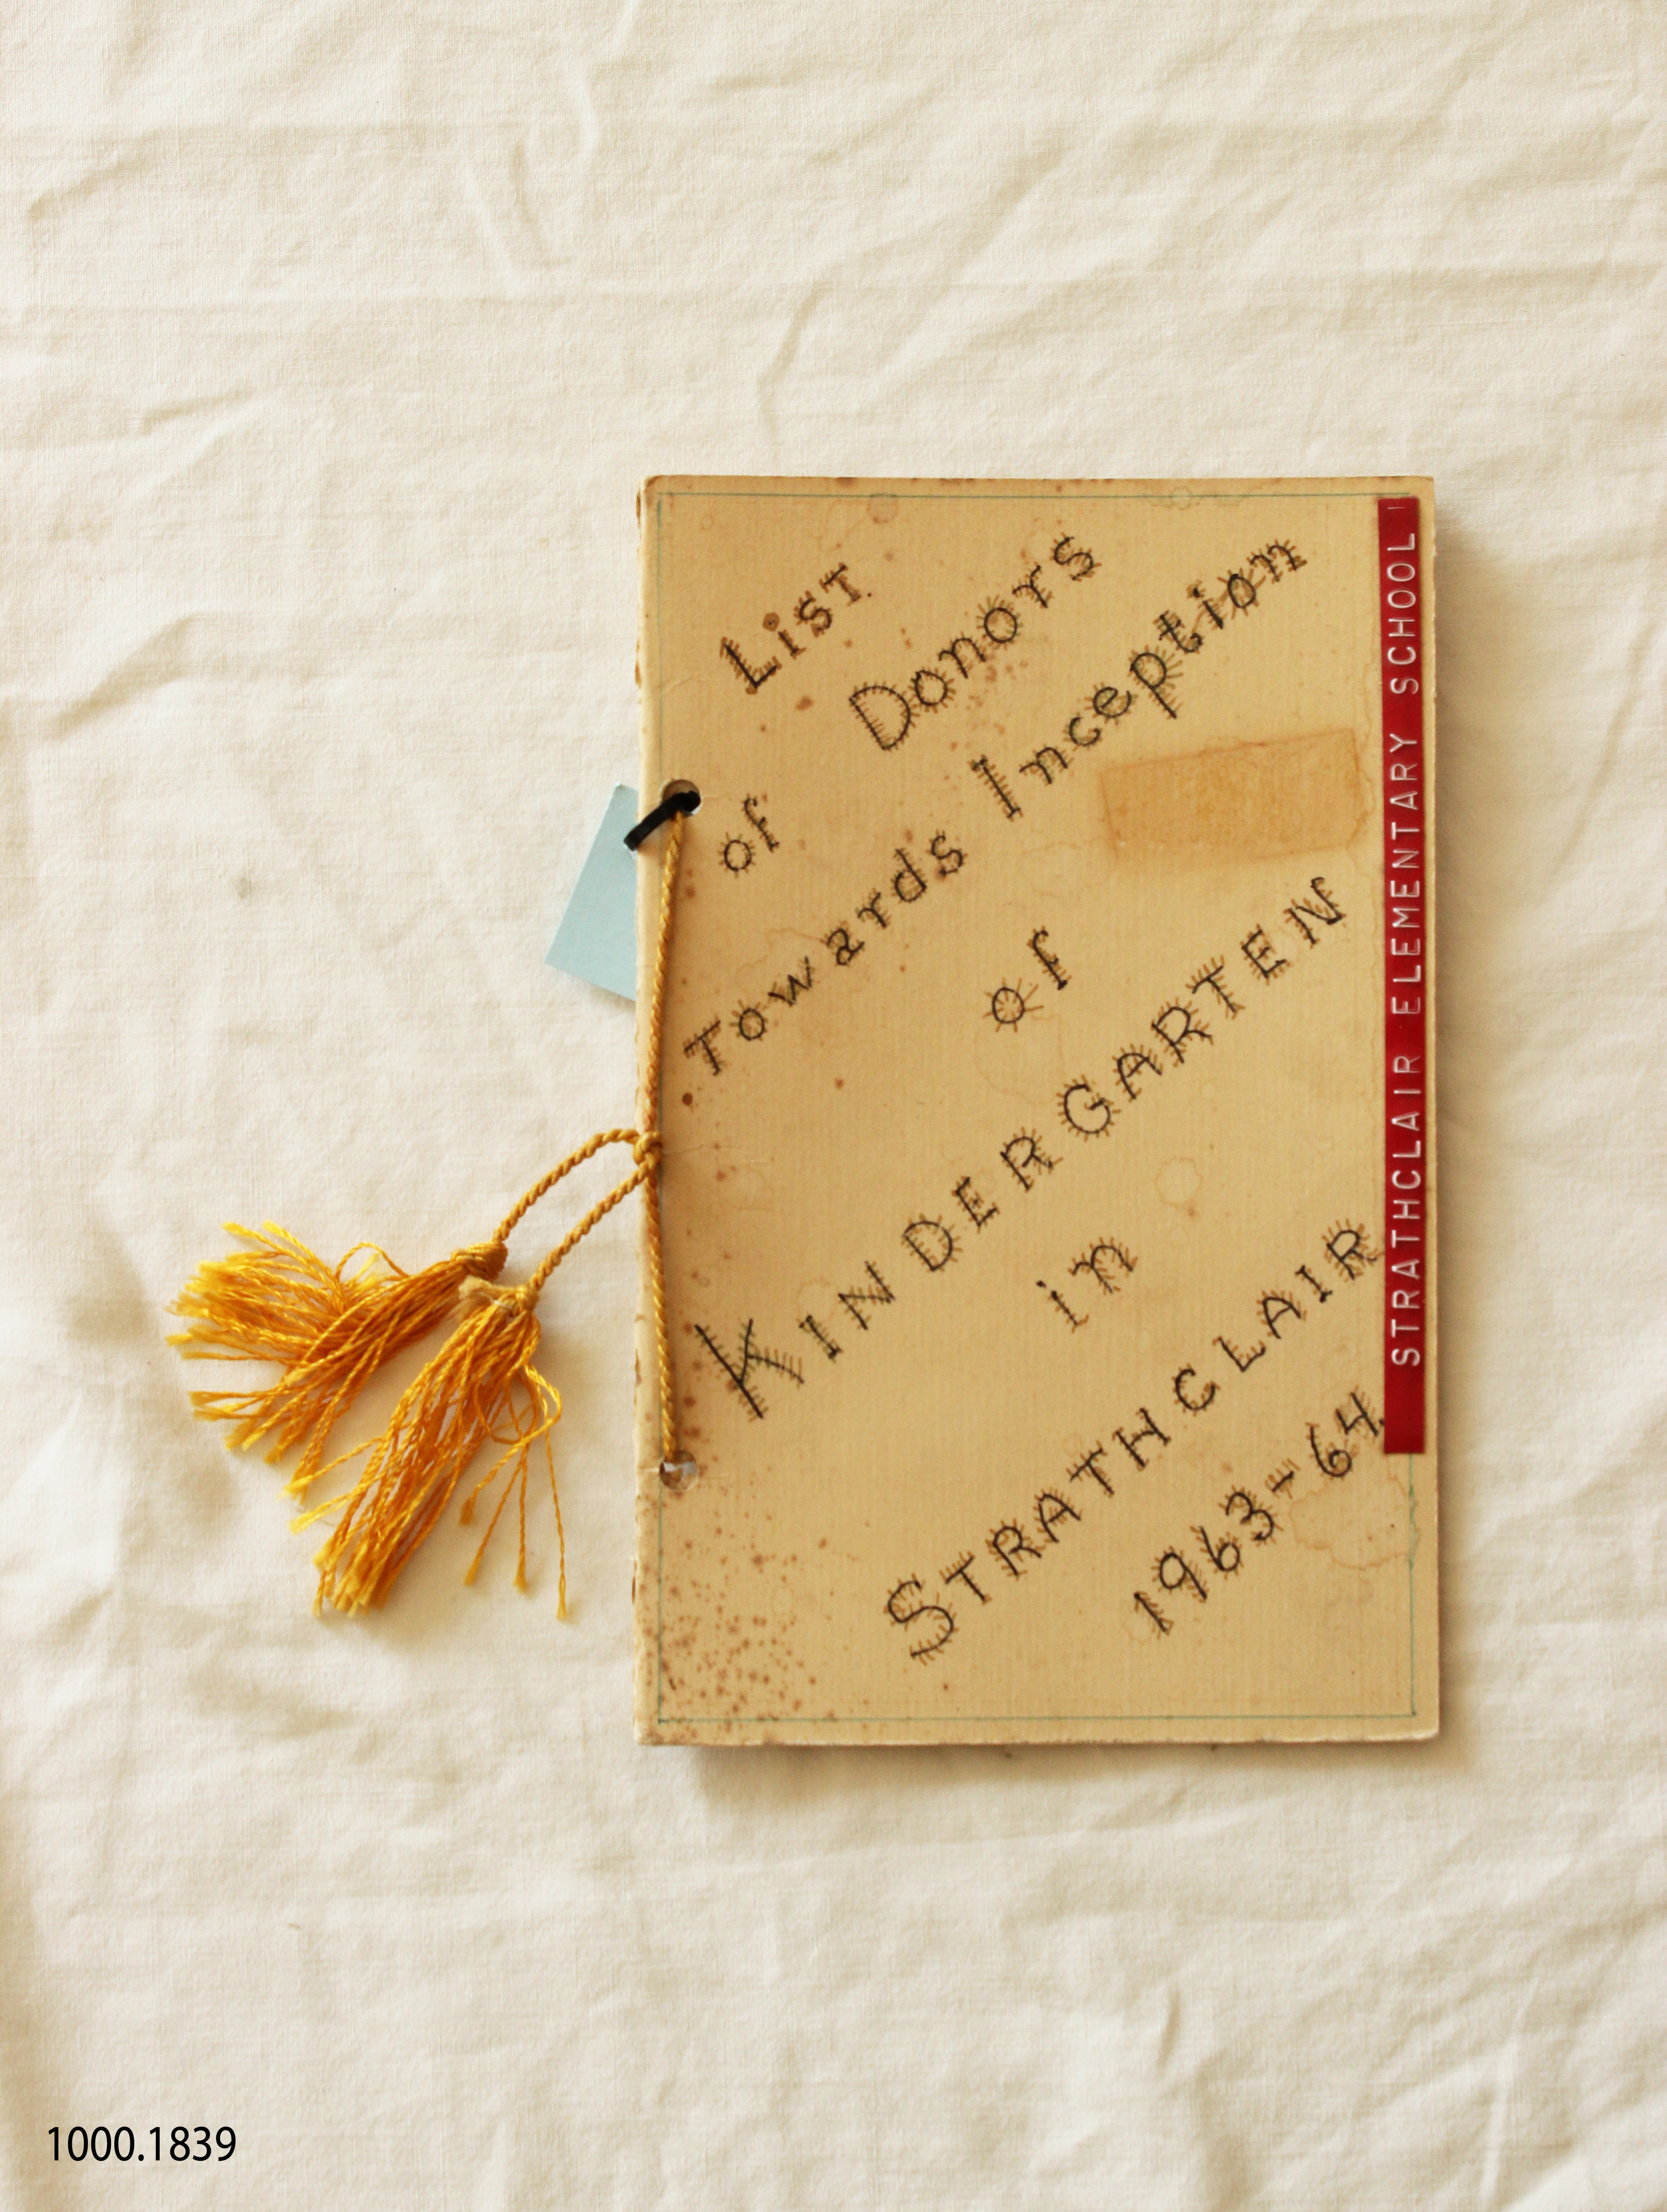 List
of Donors
Towards Inception
of
KINDERGARTEN
in
STRATHCLAIR
1963-64
STRATHCLAIR ELEMENTARY SCHOOL
1000.1839